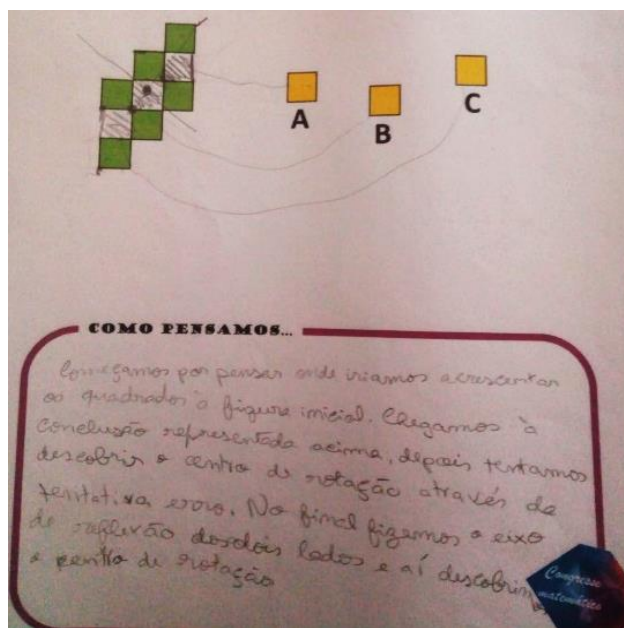 A
B
C
COMO PENSAMOS...
Começamos por pensar onde iriamos acrescentar
os quadrados à figura inicial. Chegamos à
conclusão representada acima, depois tentamos
descobrir o centro de rotação através de
tentativa erro. No final fizemos o eixo
de reflexão dos dois lados e aí descobrimos
o centro de rotação
Congresso
matemático